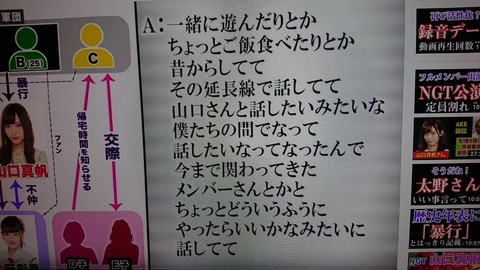 軍団
B(25)
C
暴行
ファン
帰宅時間を知らせる
交際
山口真帆
不仲
D子
E子
A:一緒に遊んだりとか
ちょっとご飯食べたりとか
昔からしてて
その延長線で話してて
山口さんと話したいみたいな
僕たちの間でなって
話したいなってなったんで
今まで関わってきた
メンバーさんとかと
ちょっとどういうふうに
やったらいいかなみたいに
話してて
再び活性化?
録音デー
動画再生回数
フルメンバー出
NGT公演
定員割れ
AKS
山口真帆さん
そうだね!
太野さん
いい事言って
歴史年表に
「暴行」
とはっきり記載
NGT 山口真帆